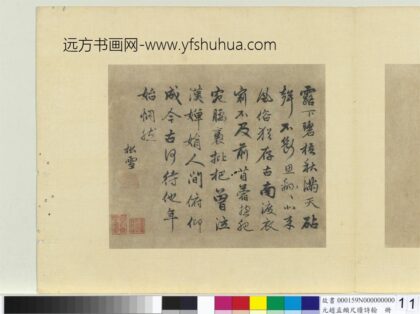 远方书画网-www.yfshuhua.com
露下碧梧秋滿天砧
聲不斷思
風俗猶存古南渡衣
冠不及前苜蓿
宛騕褭枇杷曾泣
漢嬋娟人間俯仰
成今古何待他年
始惘然
松雪
故書 000159N000000000
元趙孟頫尺牘詩翰 冊
11